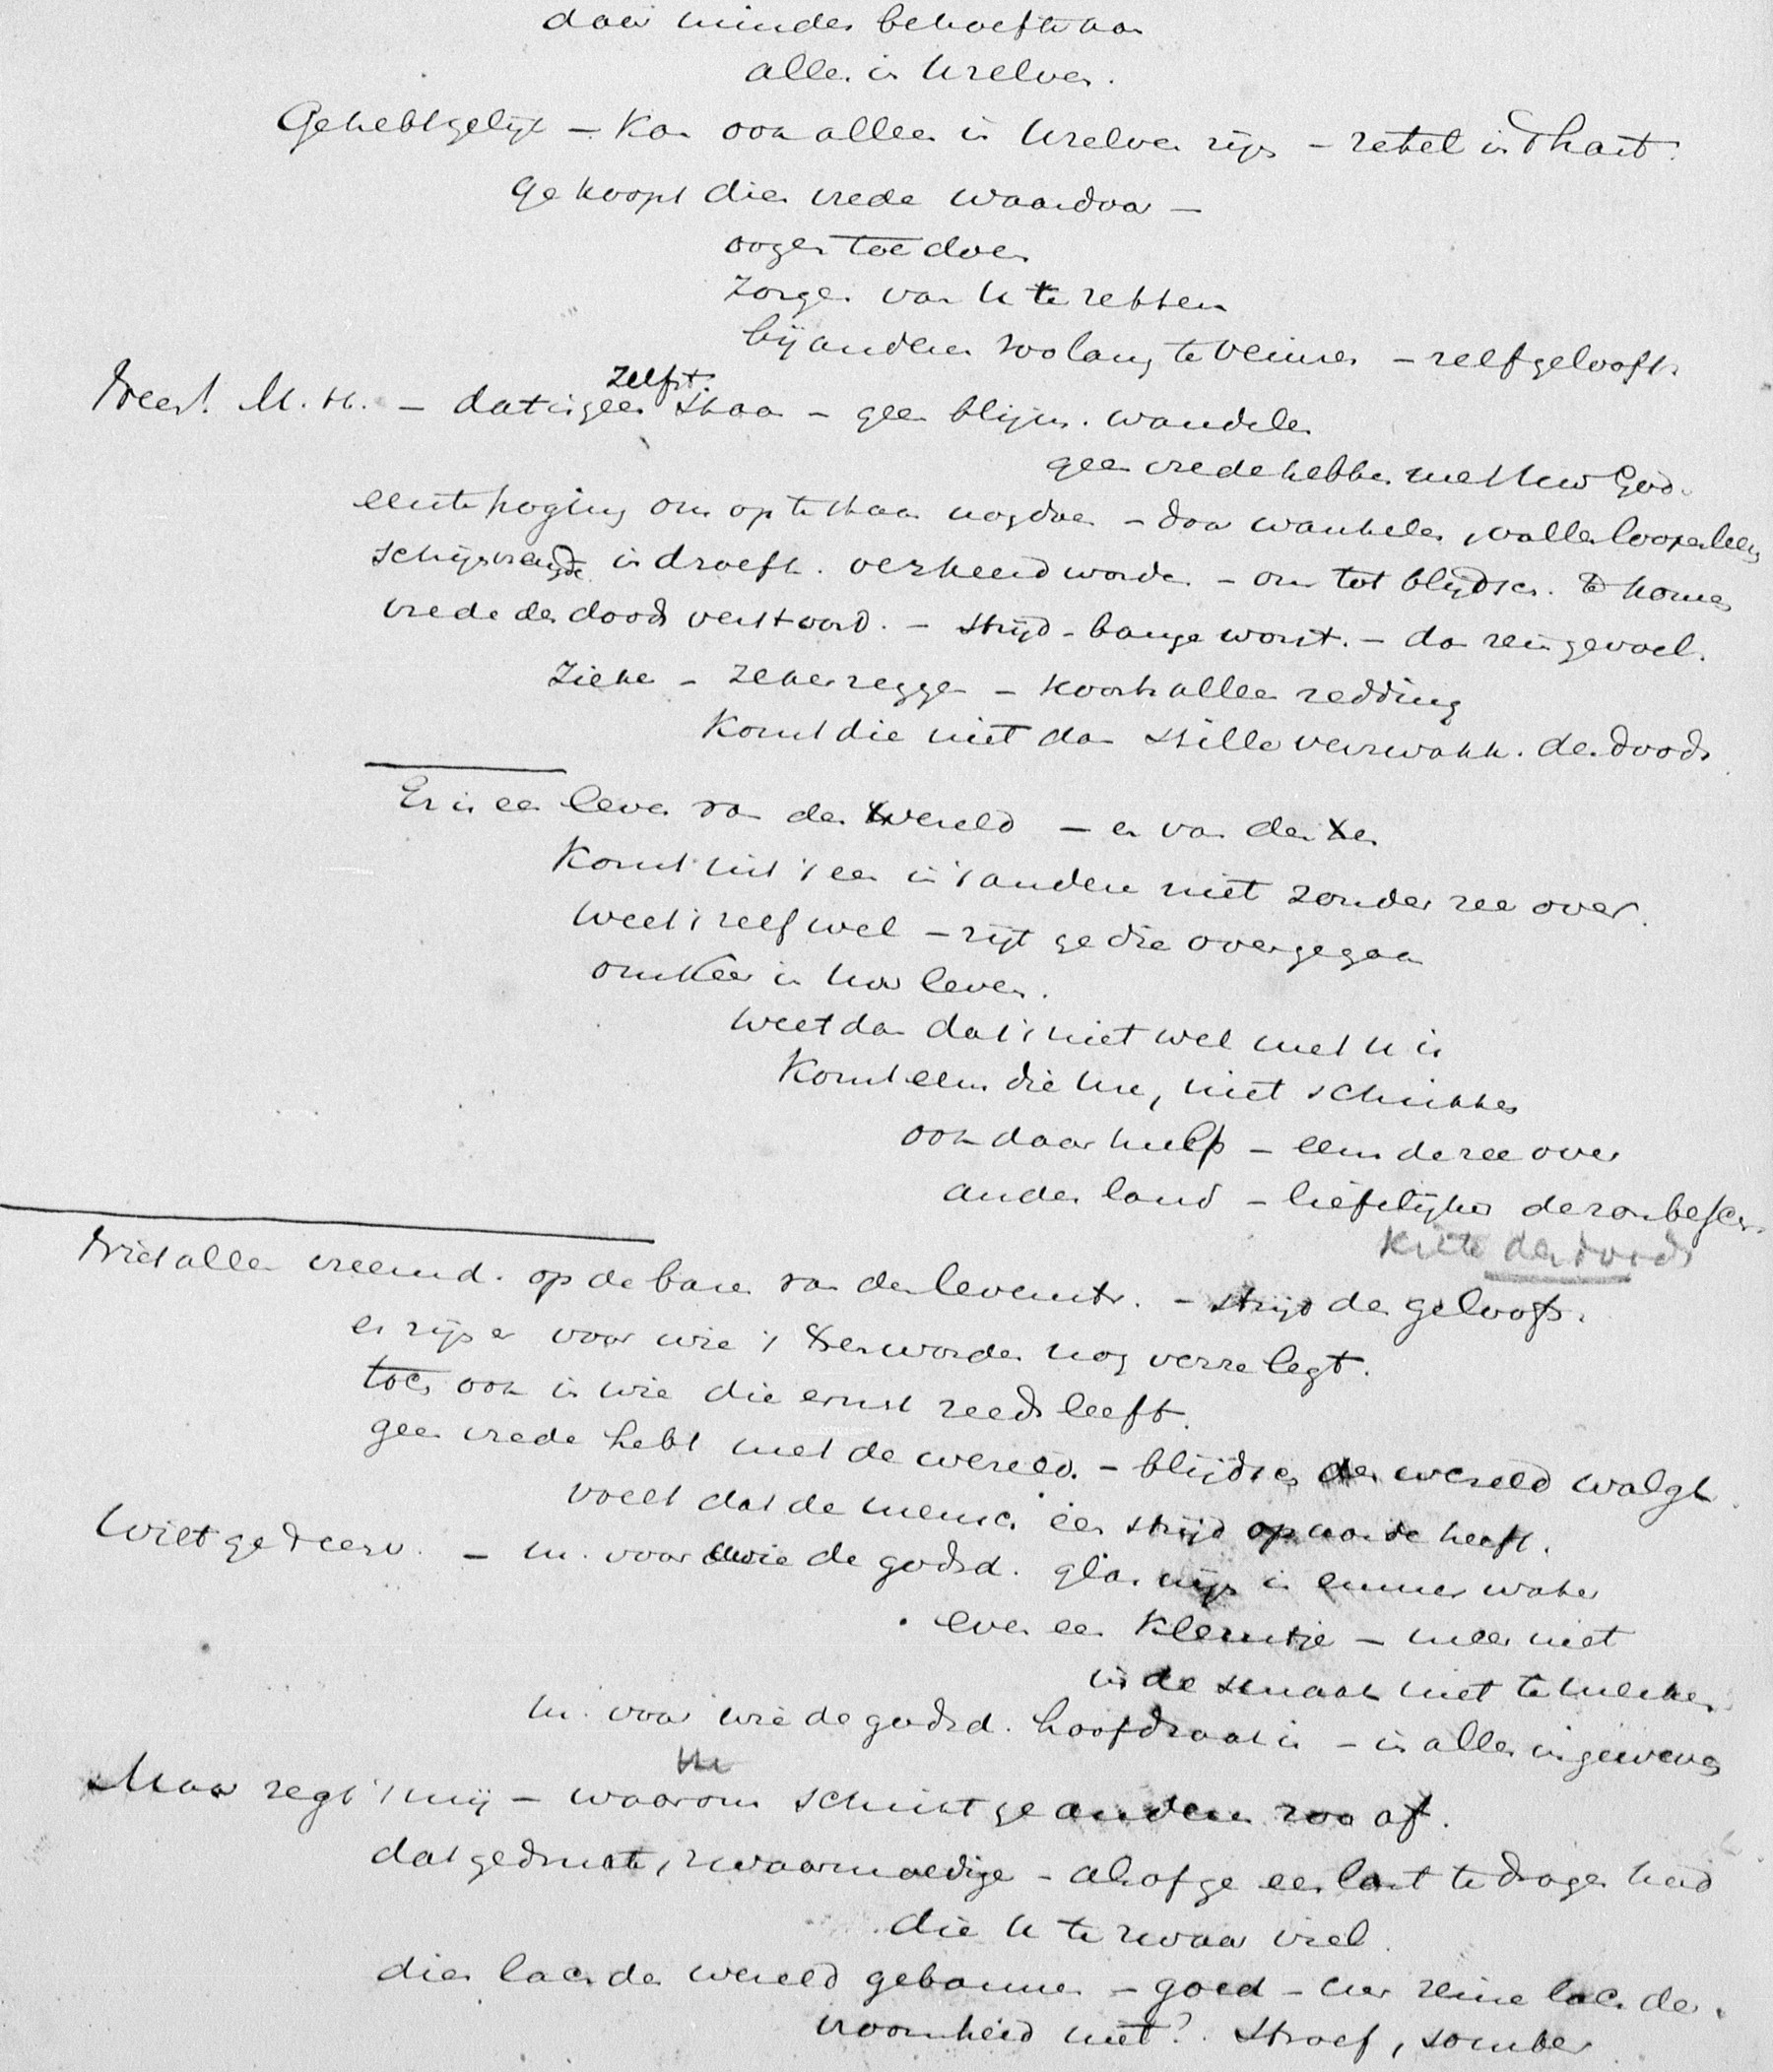 daar minder behoefte aan
alles in Uzelven.
Ge hebt gelijk – Kan ook alleen in Uzelven zijn – zetel in 't hart.
Ge koopt dien vrede waardoor –
oogen toe doen
zorgen van U te zetten
bij anderen zoolang te veinzen – zelf gelooft.
Neen! M. H. – dat is geen zelfst. staan – geen blijm. wandelen
geen vrede hebben met Uw God.
eerste poging om op te staan nog doen – door wankelen, vallen loopen leeren
schijnvreugde in droefh. verkeerd worden – om tot blijdsch. te komen
vrede des doods verstoord. – strijd – bange worst. – dan rein gevoel.
Zieke – zeker zeggen – koorts alleen redding
Komt die niet dan stille verzwakk. des doods
Er is een leven van de wereld – en van den Xen
Komt uit 't een in 't andere niet zonder zee over.
Weet 't zelf wel – zijt ge die overgegaan
omkeer in Uw leven.
Weet dan dat 't niet wel met U is
Komt eens die ure, niet schrikken
ook daar hulp – eens de zee over
ander land – liefelijker de zon besch.
Kilte des doods
Niet allen vreemd. op de baren van den levensstr. – strijd des geloofs.
er zijn er voor wie 't Xen worden nog verre legt.
toch ook in wie die ernst reeds leeft.
geen vrede hebt met de wereld. – blijdsch der wereld walgt
voelt dat de mensch een strijd op aarde heeft.
Wilt ge dezen. – m. voor wie de godsd. glas wijn in emmer water
even een kleurtje – meer niet
in de smaak niet te merken
m. voor wie de godsd. hoofdzaak is – in alles ingeweven
Maar zegt 't mij – waarom schrikt ge anderen zoo af.
dat gedrukte, zwaarmoedige – alsof ge een last te dragen hadt
die U te zwaar viel.
dien lach der wereld gebannen – goed – maar reine lach der
vroomheid niet? Stroef, somber